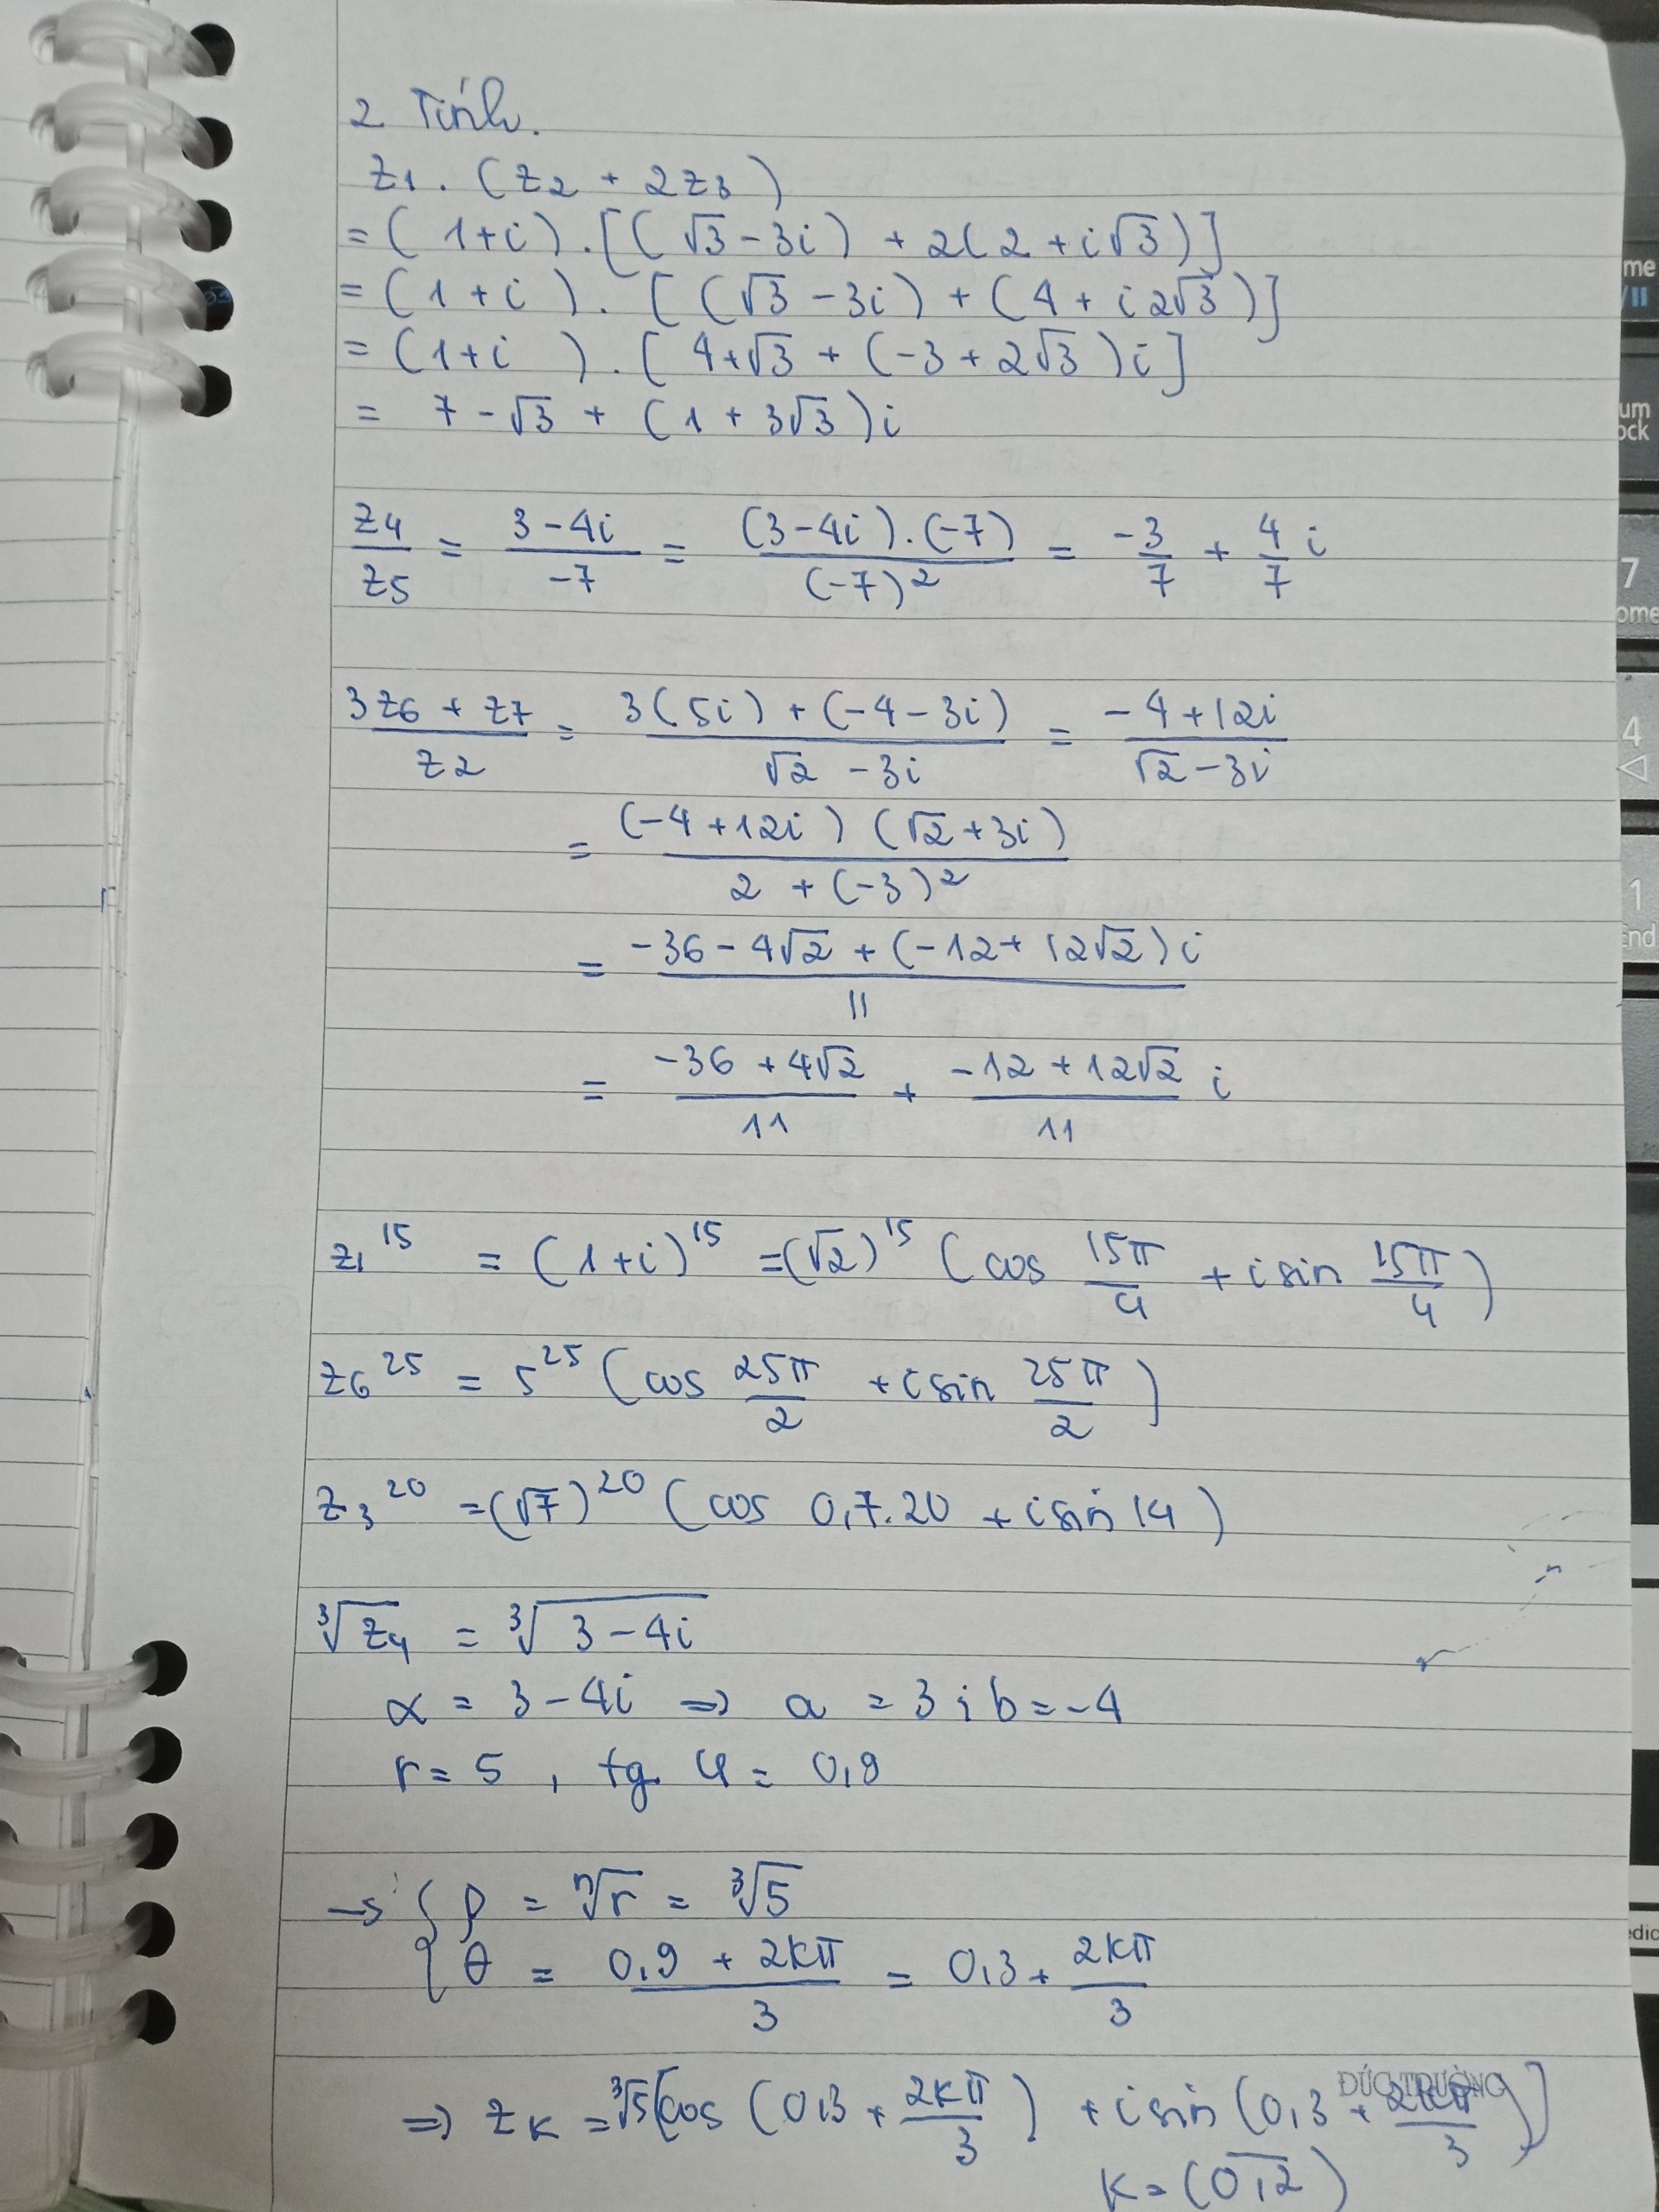 2 Tính.
z1 . (z2 + 2z3)
= (1+i) . [(√3 - 3i) + 2(2 + i√3)]
= (1+i) . [(√3 - 3i) + (4 + i2√3)]
= (1+i) . [4+√3 + (-3 + 2√3)i]
= 7 - √3 + (1 + 3√3)i
z4/z5 = (3-4i)/-7 = (3-4i).(-7)/(-7)² = -3/7 + 4/7 i
(3z6 + z7)/z2 = (3(5i) + (-4-3i))/(√2 - 3i) = (-4+12i)/(√2-3i)
= (-4+12i)(√2+3i)/(2 + (-3)²)
= (-36 - 4√2 + (-12 + 12√2)i)/11
= (-36 + 4√2)/11 + (-12 + 12√2)/11 i
z1¹⁵ = (1+i)¹⁵ = (√2)¹⁵ (cos 15π/4 + i sin 15π/4)
z6²⁵ = 5²⁵ (cos 25π/2 + i sin 25π/2)
z3²⁰ = (√7)²⁰ (cos 0,7.20 + i sin 14)
∛z4 = ∛(3-4i)
α = 3-4i ⇒ a = 3 ; b = -4
r = 5 , tg φ = 0,9
→ { ρ = ⁿ√r = ∛5
θ = (0,9 + 2kπ)/3 = 0,3 + 2kπ/3
⇒ zK = ∛5[cos (0,3 + 2kπ/3) + i sin (0,3 + 2kπ/3)]
K = (0,2)
ĐỨC TRƯỜNG
me
/II
um
ock
7
ome
4
◁
1
End
edic